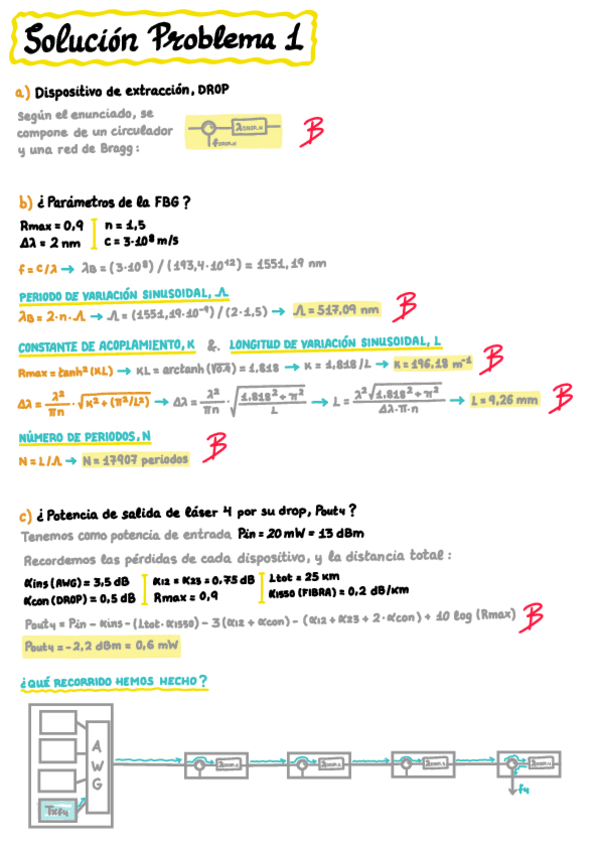 Solución Problema 1
a) Dispositivo de extracción, DROP
Según el enunciado, se
compone de un circulador
y una red de Bragg:
λDROP,N
fDROP,N
B
b) ¿Parámetros de la FBG?
Rmax = 0,9
n = 1,5
Δλ = 2 nm
c = 3·10⁸ m/s
f = c/λ → λB = (3·10⁸) / (193,4·10¹²) = 1551,19 nm
PERIODO DE VARIACIÓN SINUSOIDAL, Λ
λB = 2·n·Λ → Λ = (1551,19·10⁻⁹) / (2·1,5) → Λ = 517,09 nm
B
CONSTANTE DE ACOPLAMIENTO, K & LONGITUD DE VARIACIÓN SINUSOIDAL, L
Rmax = tanh² (KL) → KL = arctanh (√0,9) = 1,818 → K = 1,818 / L → K = 196,18 m⁻¹
B
Δλ = λ²/πn · √(K² + (π²/L²)) → Δλ = λ²/πn · √(1,818² + π²)/L → L = λ²√(1,818² + π²)/Δλ·π·n → L = 9,26 mm
B
NÚMERO DE PERIODOS, N
N = L/Λ → N = 17907 periodos
B
c) ¿Potencia de salida de láser 4 por su drop, Pout4?
Tenemos como potencia de entrada Pin = 20 mW = 13 dBm
Recordemos las pérdidas de cada dispositivo, y la distancia total:
αins (AWG) = 3,5 dB
α12 = α23 = 0,75 dB
Ltot = 25 km
αcon (DROP) = 0,5 dB
Rmax = 0,9
α1550 (FIBRA) = 0,2 dB/km
Pout4 = Pin - αins - (Ltot·α1550) - 3(α12 + αcon) - (α12 + α23 + 2·αcon) + 10 log (Rmax)
B
Pout4 = -2,2 dBm = 0,6 mW
¿QUÉ RECORRIDO HEMOS HECHO?
AWG
Txf4
f4